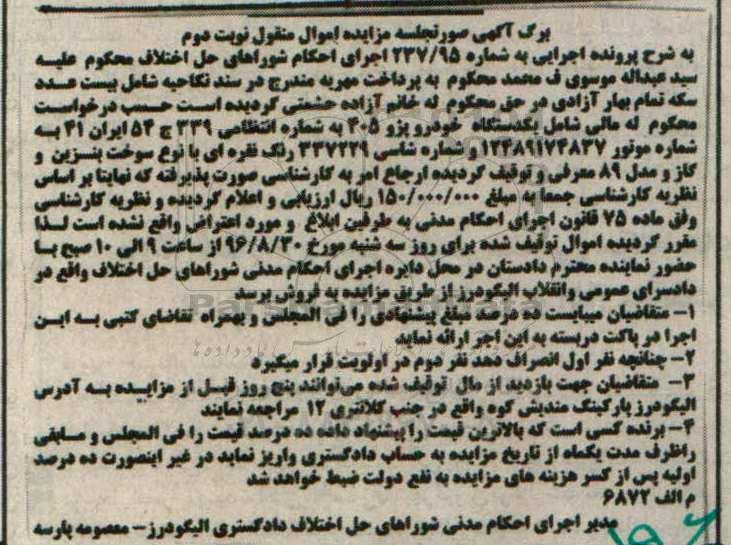 برگ آگهی صورتجلسه مزایده اموال منقول نوبت دوم
به شرح پرونده اجرایی به شماره ۲۳۷/۹۵ اجرای احکام شوراهای حل اختلاف محکوم علیه
سید عبداله موسوی ف محمد محکوم به پرداخت مهریه مندرج در سند نکاحیه شامل بیست عدد
سکه تمام بهار آزادی در حق محکوم له خانم آزاده حشمتی گردیده است حسب درخواست
محکوم له مالی شامل یکدستگاه خودرو پژو ۴۰۵ به شماره انتظامی ۳۳۹ ج ۵۴ ایران ۴۱ به
شماره موتور ۱۲۴۸۹۱۷۴۸۳۷ و شماره شاسی ۳۳۷۲۲۹ رنگ نقره ای با نوع سوخت بنزین و
گاز و مدل ۸۹ معرفی و توقیف گردیده ارجاع امر به کارشناسی صورت پذیرفته که نهایتا بر اساس
نظریه کارشناسی جمعا به مبلغ ۱۵۰/۰۰۰/۰۰۰ ریال ارزیابی و اعلام گردیده و نظریه کارشناسی
وفق ماده ۷۵ قانون اجرای احکام مدنی به طرفین ابلاغ و مورد اعتراض واقع نشده است لذا
مقرر گردیده اموال توقیف شده برای روز سه شنبه مورخ ۹۶/۸/۳۰ از ساعت ۹ الی ۱۰ صبح با
حضور نماینده محترم دادستان در محل دایره اجرای احکام مدنی شوراهای حل اختلاف واقع در
دادسرای عمومی وانقلاب الیگودرز از طریق مزایده به فروش برسد
۱- متقاضیان میبایست ده درصد مبلغ پیشنهادی را فی المجلس و بهمراه تقاضای کتبی به این
اجرا در پاکت دربسته به این اجر ارائه نماید
۲- چنانچه نفر اول انصراف دهد نفر دوم در اولویت قرار میگیرد
۳- متقاضیان جهت بازدید از مال توقیف شده می‌توانند پنج روز قبل از مزایده به آدرس
الیگودرز پارکینگ مندیش کوه واقع در جنب کلانتری ۱۲ مراجعه نمایند
۴- برنده کسی است که بالاترین قیمت را پیشنهاد داده ده درصد قیمت را فی المجلس و مابقی
راظرف مدت یکماه از تاریخ مزایده به حساب دادگستری واریز نماید در غیر اینصورت ده درصد
اولیه پس از کسر هزینه های مزایده به نفع دولت ضبط خواهد شد
م الف ۶۸۷۲
مدیر اجرای احکام مدنی شوراهای حل اختلاف دادگستری الیگودرز- معصومه پارسه